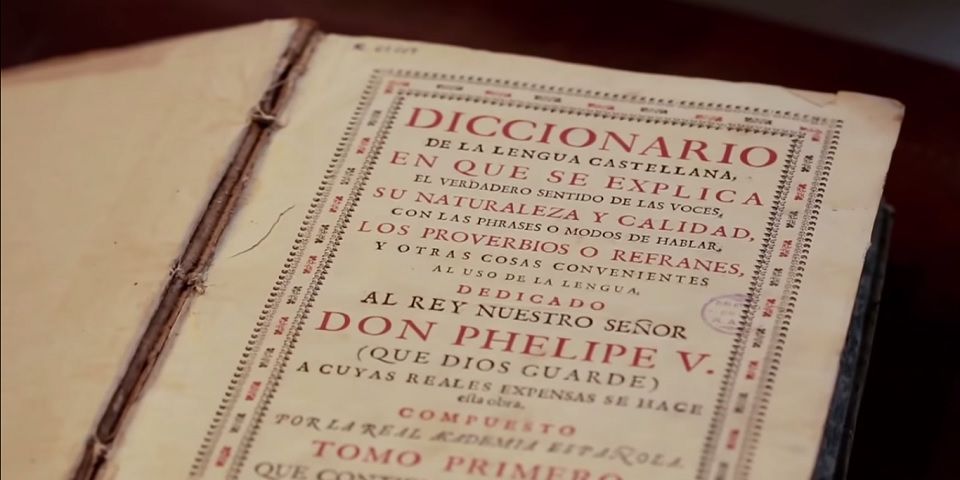 DICCIONARIO
DE LA LENGUA CASTELLANA,
EN QUE SE EXPLICA
EL VERDADERO SENTIDO DE LAS VOCES,
SU NATURALEZA Y CALIDAD,
CON LAS PHRASES O MODOS DE HABLAR,
LOS PROVERBIOS O REFRANES,
Y OTRAS COSAS CONVENIENTES
AL USO DE LA LENGUA,
DEDICADO
AL REY NUESTRO SEÑOR
DON PHELIPE V.
(QUE DIOS GUARDE)
A CUYAS REALES EXPENSAS SE HACE
esta obra.
COMPUESTO
POR LA REAL ACADEMIA ESPAÑOLA.
TOMO PRIMERO
QUE